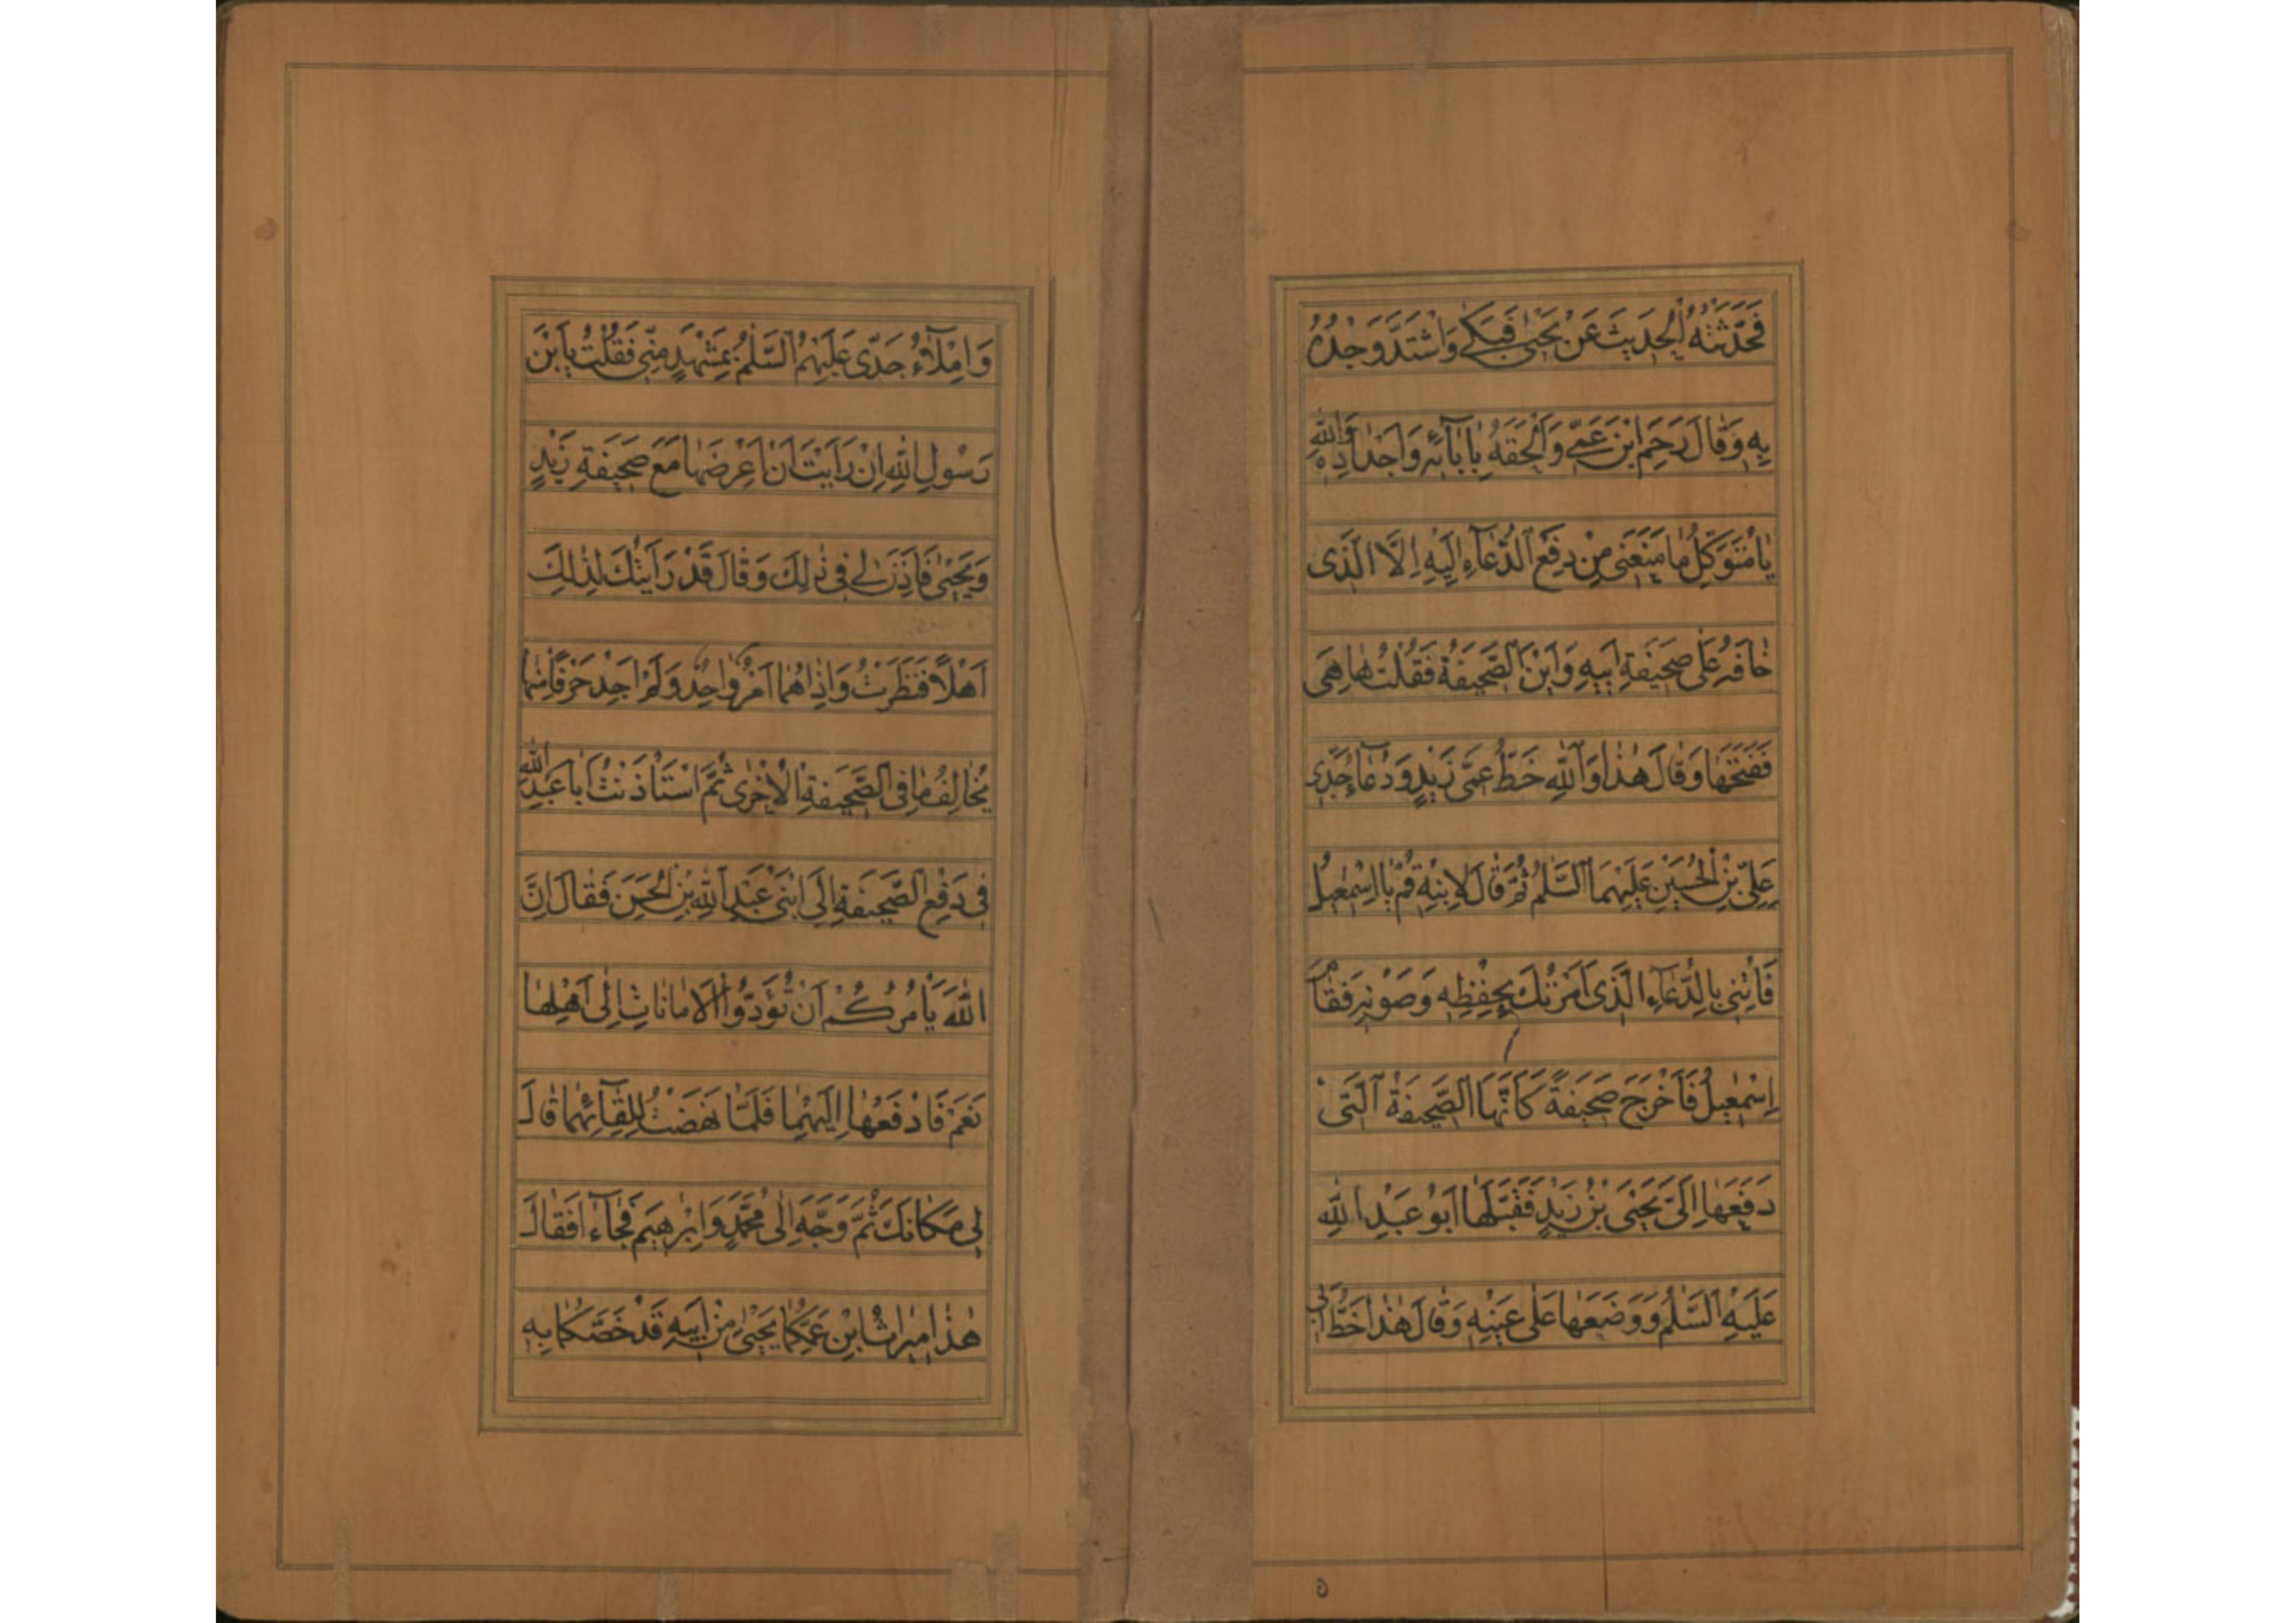 فَحَدَّثْتُهُ الْحَدیثَ عَنْ یَحْیٰی فَبَکٰی وَاشْتَدَّ وَجْدُهُ
بِهِ وَقٰالَ رَحِمَ ابْنَ عَمّی وَاَلْحَقَهُ بِاٰبٰآئِهِ وَاَجْدٰادِهِ وَاللّٰهِ
یٰا مُتَوَکِّلُ مٰا مَنَعَنی مِنْ دَفْعِ الدُّعٰآءِ اِلَیْهِ اِلَّا الَّذی
خٰافَهُ عَلٰی صَحیفَةِ اَبیهِ وَاَیْنَ الصَّحیفَةُ فَقُلْتُ هٰا هِیَ
فَفَتَحَهٰا وَقٰالَ هٰذٰا وَاللّٰهِ خَطُّ عَمّی زَیْدٍ وَدُعٰآءُ جَدّی
عَلِیِّ بْنِ الْحُسَیْنِ عَلَیْهِمَا السَّلٰمُ ثُمَّ قٰالَ لِابْنِهِ قُمْ یٰا اِسْمٰعیلُ
فَاْتِنی بِالدُّعٰآءِ الَّذی اَمَرْتُكَ بِحِفْظِهِ وَصَوْنِهِ فَقٰامَ
اِسْمٰعیلُ فَاَخْرَجَ صَحیفَةً کَاَنَّهَا الصَّحیفَةُ الَّتی
دَفَعَهٰا اِلَیَّ یَحْیَی بْنُ زَیْدٍ فَقَبَّلَهٰا اَبُو عَبْدِ اللّٰهِ
عَلَیْهِ السَّلٰمُ وَوَضَعَهٰا عَلٰی عَیْنِهِ وَقٰالَ هٰذٰا خَطُّ اَبی
وَاِمْلٰآءُ جَدّی عَلَیْهِمُ السَّلٰمُ بِمَشْهَدٍ مِنّی فَقُلْتُ یَابْنَ
رَسُولِ اللّٰهِ اِنْ رَاَیْتَ اَنْ اَعْرِضَهٰا مَعَ صَحیفَةِ زَیْدٍ
وَیَحْیٰی فَاَذِنَ لی فی ذٰلِكَ وَقٰالَ قَدْ رَاَیْتُكَ لِذٰلِكَ
اَهْلًا فَنَظَرْتُ وَاِذٰا هُمٰا اَمْرٌ وٰاحِدٌ وَلَمْ اَجِدْ حَرْفًا مِنْهٰا
یُخٰالِفُ مٰا فِی الصَّحیفَةِ الْاُخْرٰی ثُمَّ اسْتَاْذَنْتُ اَبٰا عَبْدِ اللّٰهِ
فی دَفْعِ الصَّحیفَةِ اِلَی ابْنَیْ عَبْدِ اللّٰهِ بْنِ الْحَسَنِ فَقٰالَ اِنَّ
اللّٰهَ یَاْمُرُکُمْ اَنْ تُؤَدُّوا الْاَمٰانٰاتِ اِلٰی اَهْلِهٰا
نَعَمْ فَادْفَعْهٰا اِلَیْهِمٰا فَلَمّٰا نَهَضْتُ لِلِقٰآئِهِمٰا قٰالَ
لی مَکٰانَكَ ثُمَّ وَجَّهَ اِلٰی مُحَمَّدٍ وَاِبْرٰهیمَ فَجٰآءٰا فَقٰالَ
هٰذٰا میرٰاثُ ابْنِ عَمِّکُمٰا یَحْیٰی مِنْ اَبیهِ قَدْ خَصَّکُمٰا بِهِ
٥